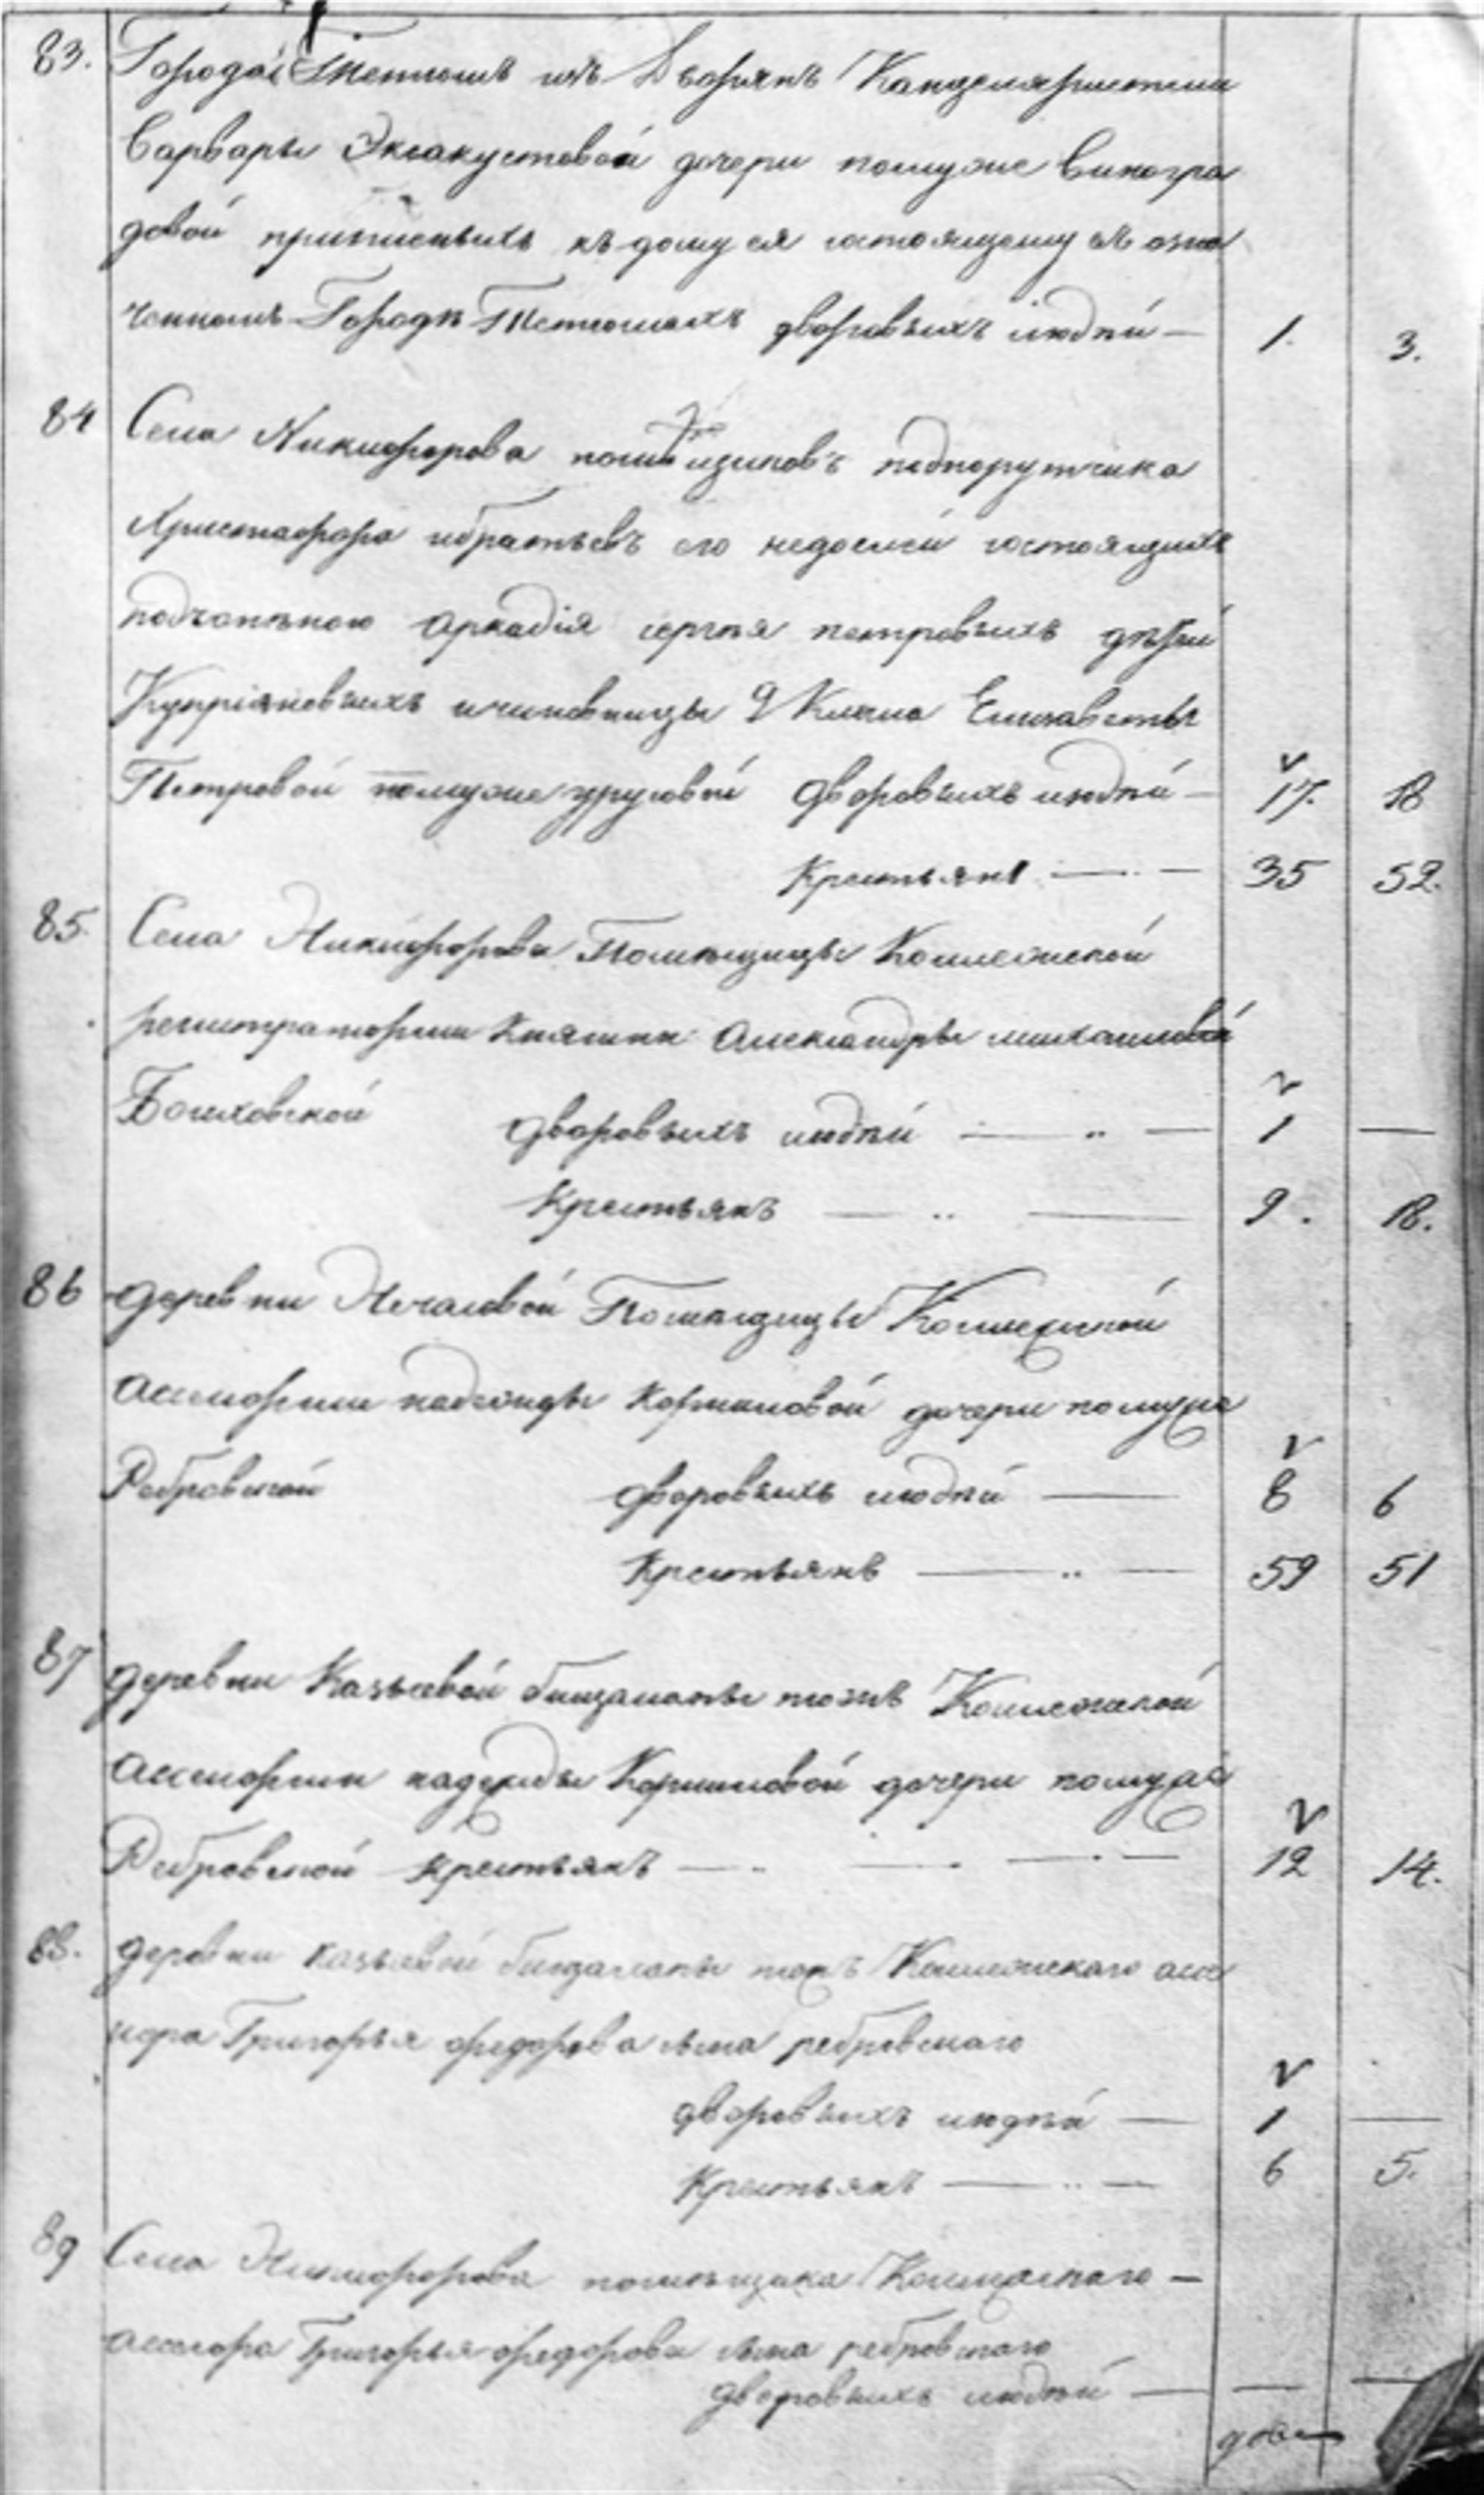 83. Города Тетюшъ изъ Дворянъ Канцеляристши
Варвары Экзакустовой дочери помуже Виногра
довой приписныхъ къ дому ея состоящему въ озна
ченномъ Городѣ Тетюшахъ дворовыхъ людѣй — 1. 3.
84 Села Никифорова помѣщиковъ подпорутчика
Христофора ибратьевъ его недолей состоящихъ
подъопѣкою Аркадія сергѣя петровыхъ дѣтей
Купріяновыхъ ичиновницы Елизаветы
Петровой помуже дворовыхъ людѣй — 17. 18
Крестьянъ — 35 52.
85. Села Никифорова Помѣщицы Коллежской
регистраторши Княгини Александры михайловой
Болховской дворовыхъ людѣй — „ — 1 —
Крестьянъ — „ — 9. 18.
86 деревни Нечасовой Помѣщицы Коллежской
Ассесорши надежды Кормиловой дочери помуже
Ребровской дворовыхъ людѣй — 8 6
Крестьянъ — „ — 59 51
87 деревни Казъевой тожъ Коллежской
Ассесорши надежды Кормиловой дочери помуже
Ребровской крестьянъ — 12 14.
88. деревни казъевой тожъ Коллежскаго асе
сора Григорья федорова сына ребровскаго
дворовыхъ людѣй — 1 —
Крестьянъ — „ — 6 5.
89 Села Никифорова помѣщика Коллежскаго —
асесора Григорья федорова сына ребровскаго
дворовыхъ людѣй — — —